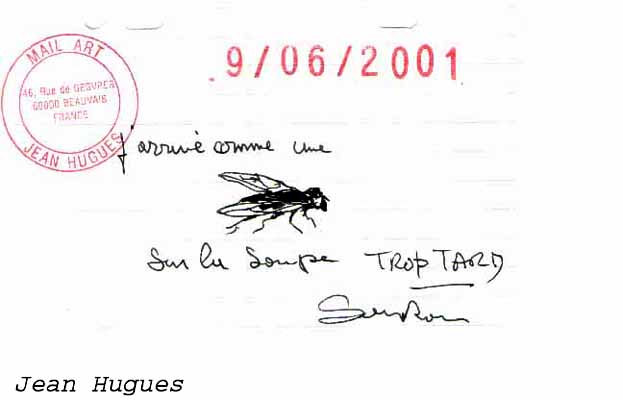 MAIL ART
46, Rue de GESVRES
60000 BEAUVAIS
FRANCE
JEAN HUGUES
9/06/2001
j'arrive comme une
sur la soupe TROP TARD
Jean Hugues